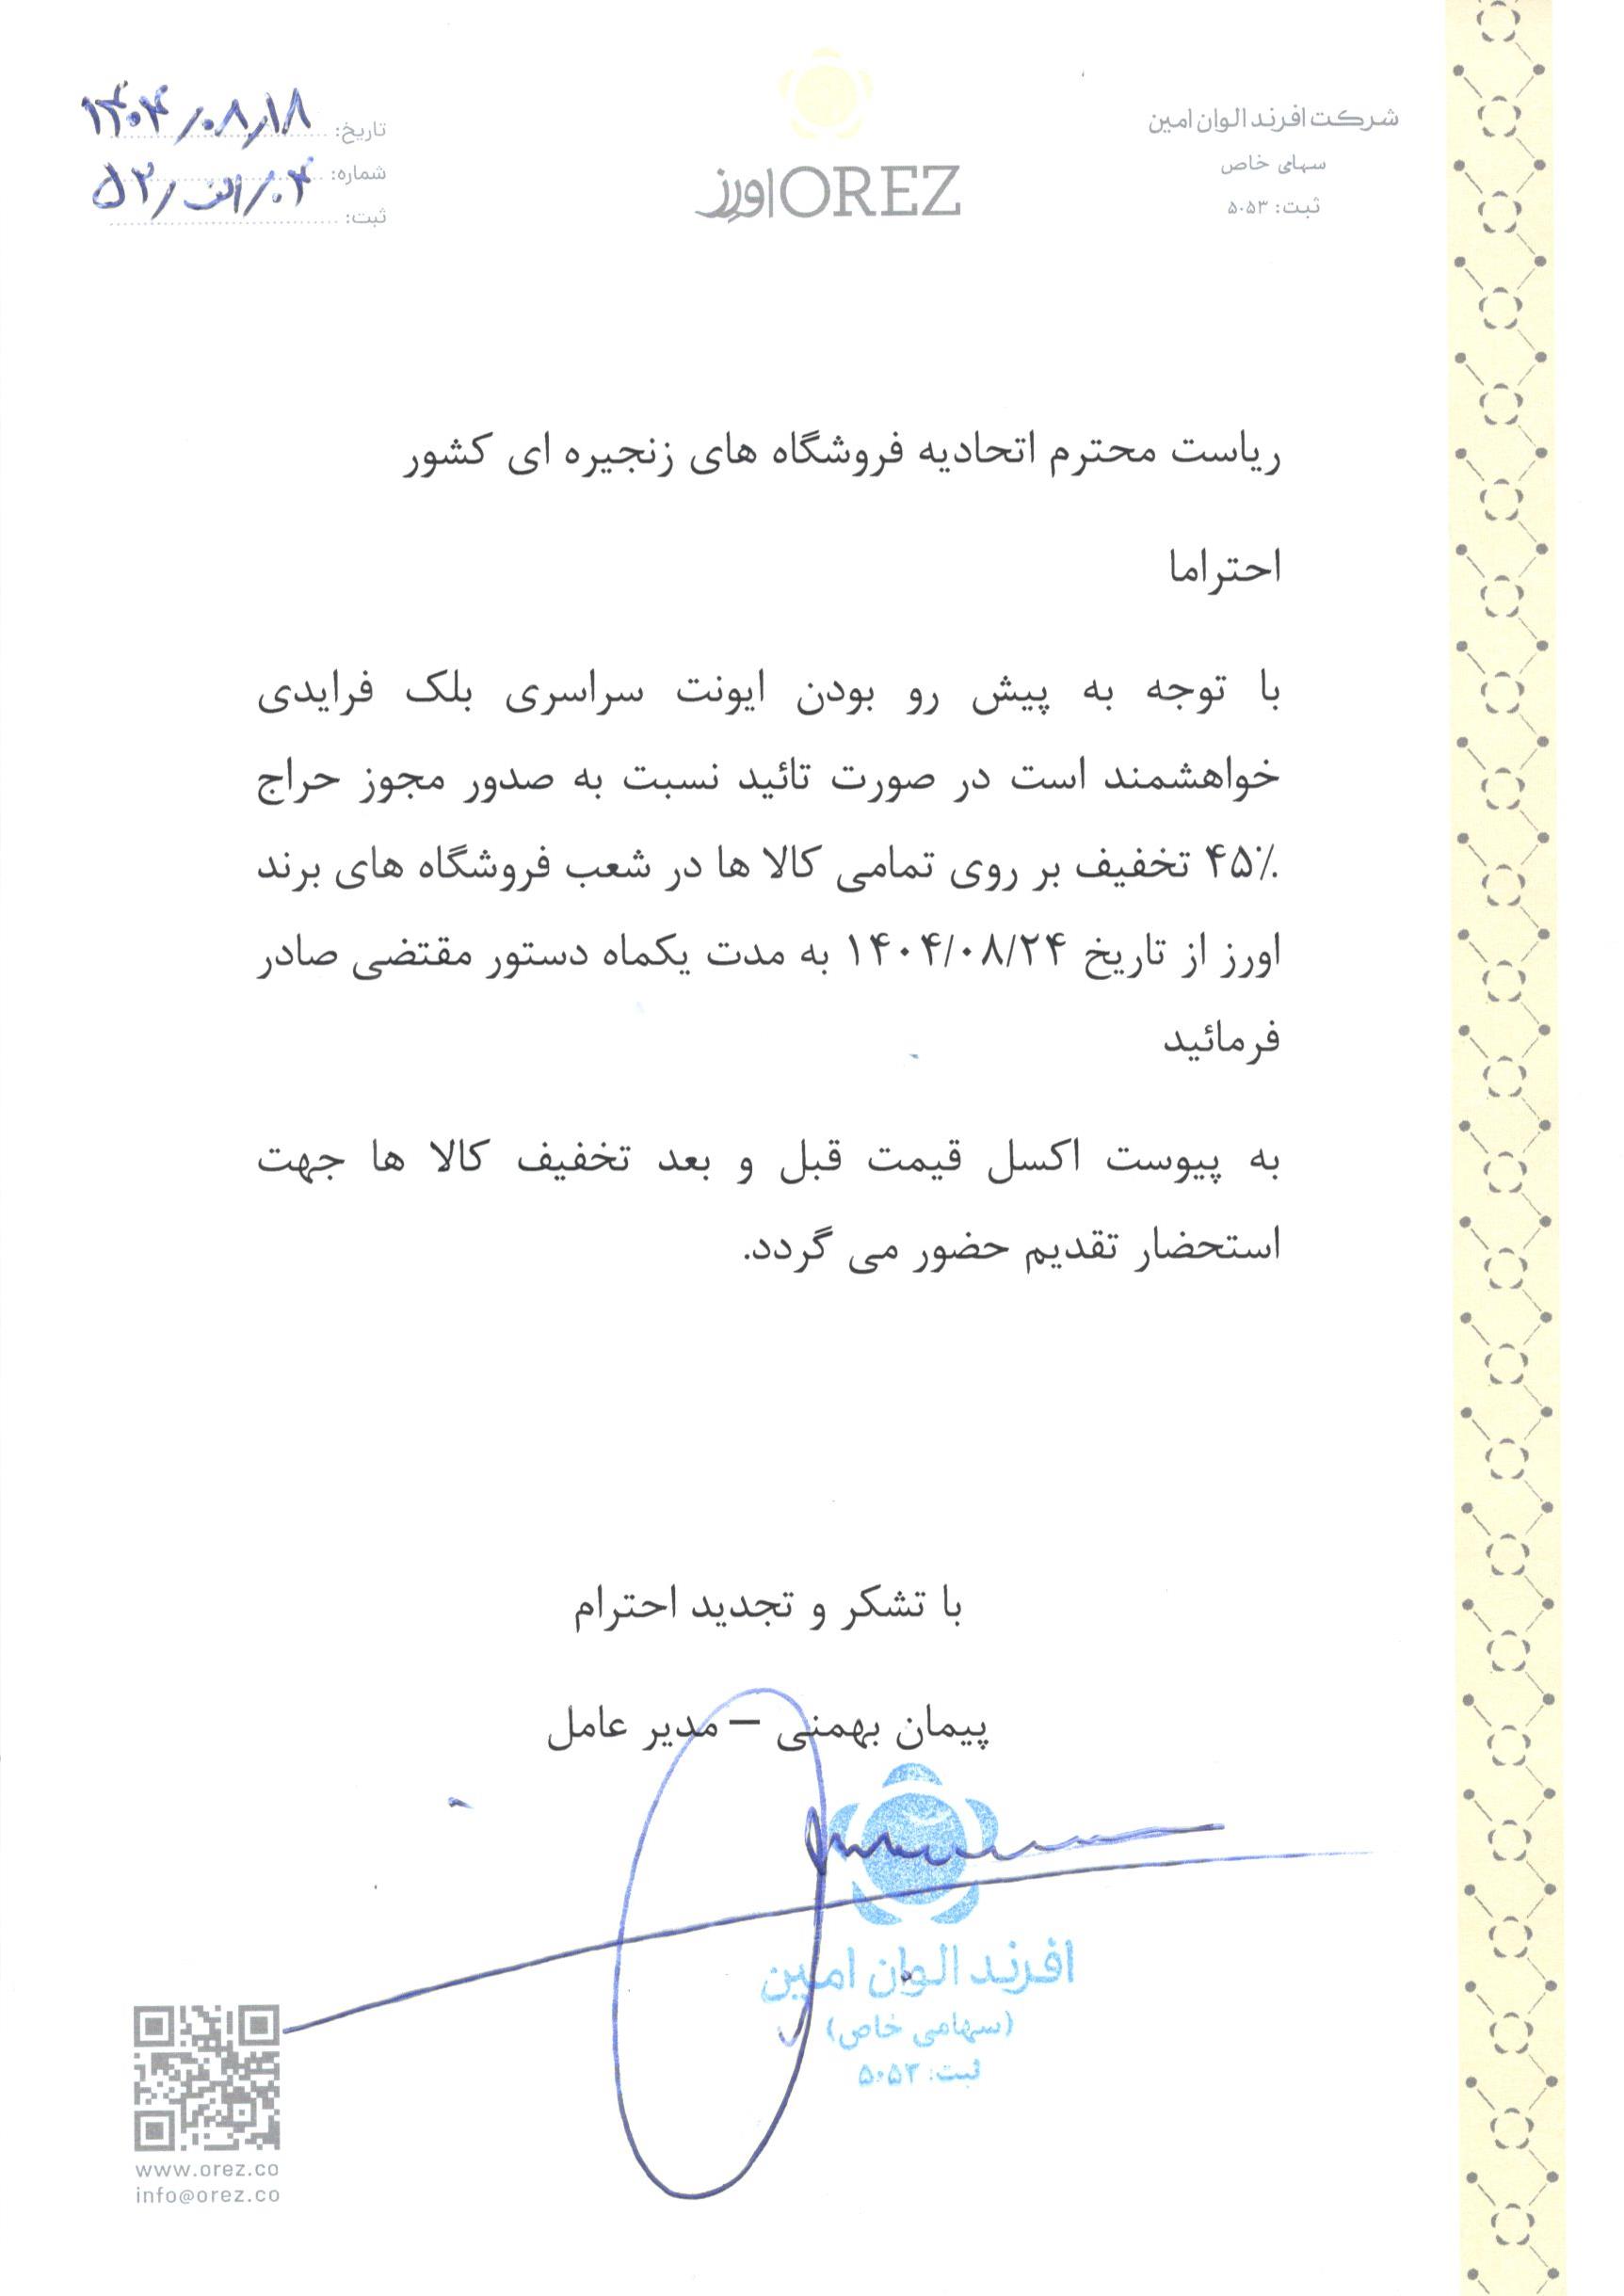 شرکت افرند الوان امین
سهامی خاص
ثبت: ۵۰۵۳
OREZ اورز
تاریخ: ۱۴۰۴/۰۸/۱۸
شماره: ۰۴/الف/۵۲
ثبت:
ریاست محترم اتحادیه فروشگاه های زنجیره ای کشور
احتراما
با توجه به پیش رو بودن ایونت سراسری بلک فرایدی
خواهشمند است در صورت تائید نسبت به صدور مجوز حراج
۴۵٪ تخفیف بر روی تمامی کالا ها در شعب فروشگاه های برند
اورز از تاریخ ۱۴۰۴/۰۸/۲۴ به مدت یکماه دستور مقتضی صادر
فرمائید
به پیوست اکسل قیمت قبل و بعد تخفیف کالا ها جهت
استحضار تقدیم حضور می گردد.
با تشکر و تجدید احترام
پیمان بهمنی – مدیر عامل
افرند الوان امین
(سهامی خاص)
ثبت: ۵۰۵۳
www.orez.co
info@orez.co